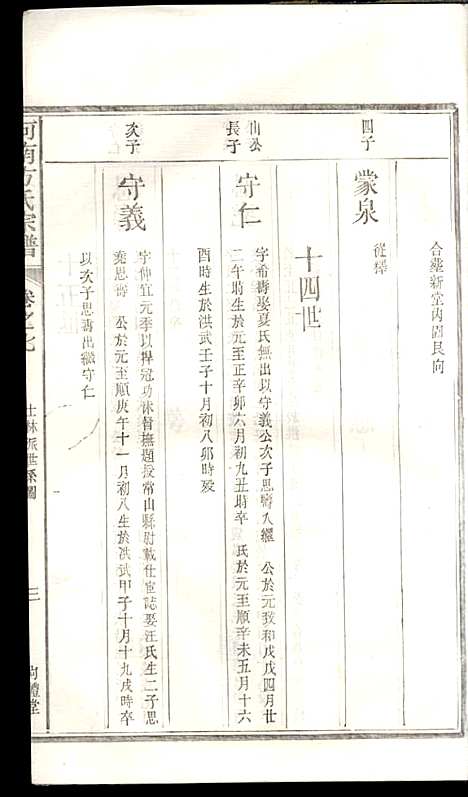 合塟新堂內園艮向
四子
蒙泉
從釋
十四世
山公
長子
守仁
字希壽娶夏氏無出以守義公次子思壽入繼 公於元致和戊戌四月廿
二午時生於元至正辛卯六月初九丑時卒 氏於元至順辛未五月十六
酉時生於洪武壬子十月初八卯時歿
次子
守義
字仲宜元季以捍冠功休督撫題授常山縣尉載仕宦誌娶汪氏生二子思
義思壽 公於元至順庚午十一月初八生於洪武甲子十月十九戌時卒
以次子思壽出繼守仁
河南方氏宗譜
卷之七
士林派世系圖
三
尚禮堂